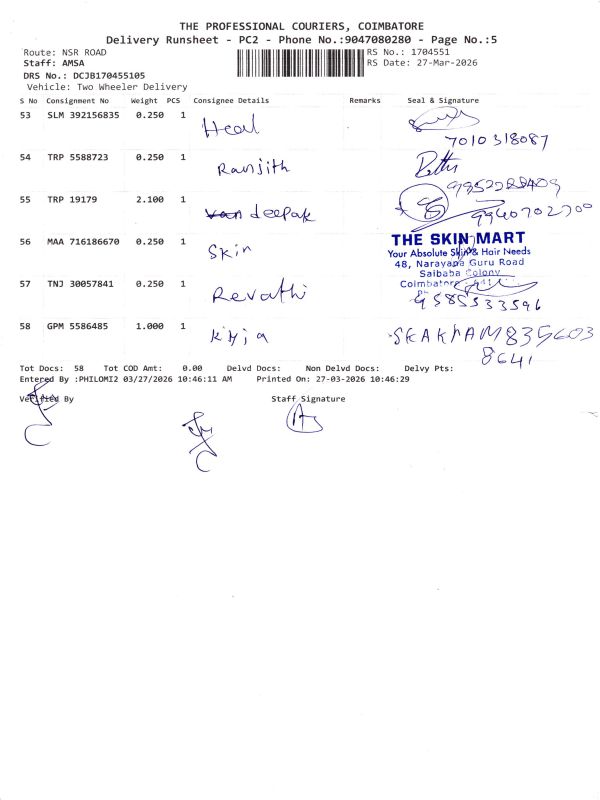 THE PROFESSIONAL COURIERS, COIMBATORE
Delivery Runsheet - PC2 - Phone No.:9047080280 - Page No.:5
Route: NSR ROAD RS No.: 1704551
Staff: AMSA RS Date: 27-Mar-2026
DRS No.: DCJB170455105
Vehicle: Two Wheeler Delivery
S No Consignment No Weight PCS Consignee Details Remarks Seal & Signature
53 SLM 392156835 0.250 1 Heal
7010318087
54 TRP 5588723 0.250 1 Ranjith
55 TRP 19179 2.100 1 deepak
9940702700
56 MAA 716186670 0.250 1 Skin
THE SKIN MART
Your Absolute Skin & Hair Needs
48, Narayana Guru Road
Saibaba Colony
Coimbatore
57 TNJ 30057841 0.250 1 Revathi
9585533596
58 GPM 5586485 1.000 1
835603
8641
Tot Docs: 58 Tot COD Amt: 0.00 Delvd Docs: Non Delvd Docs: Delvy Pts:
Entered By :PHILOMI2 03/27/2026 10:46:11 AM Printed On: 27-03-2026 10:46:29
Verified By Staff Signature